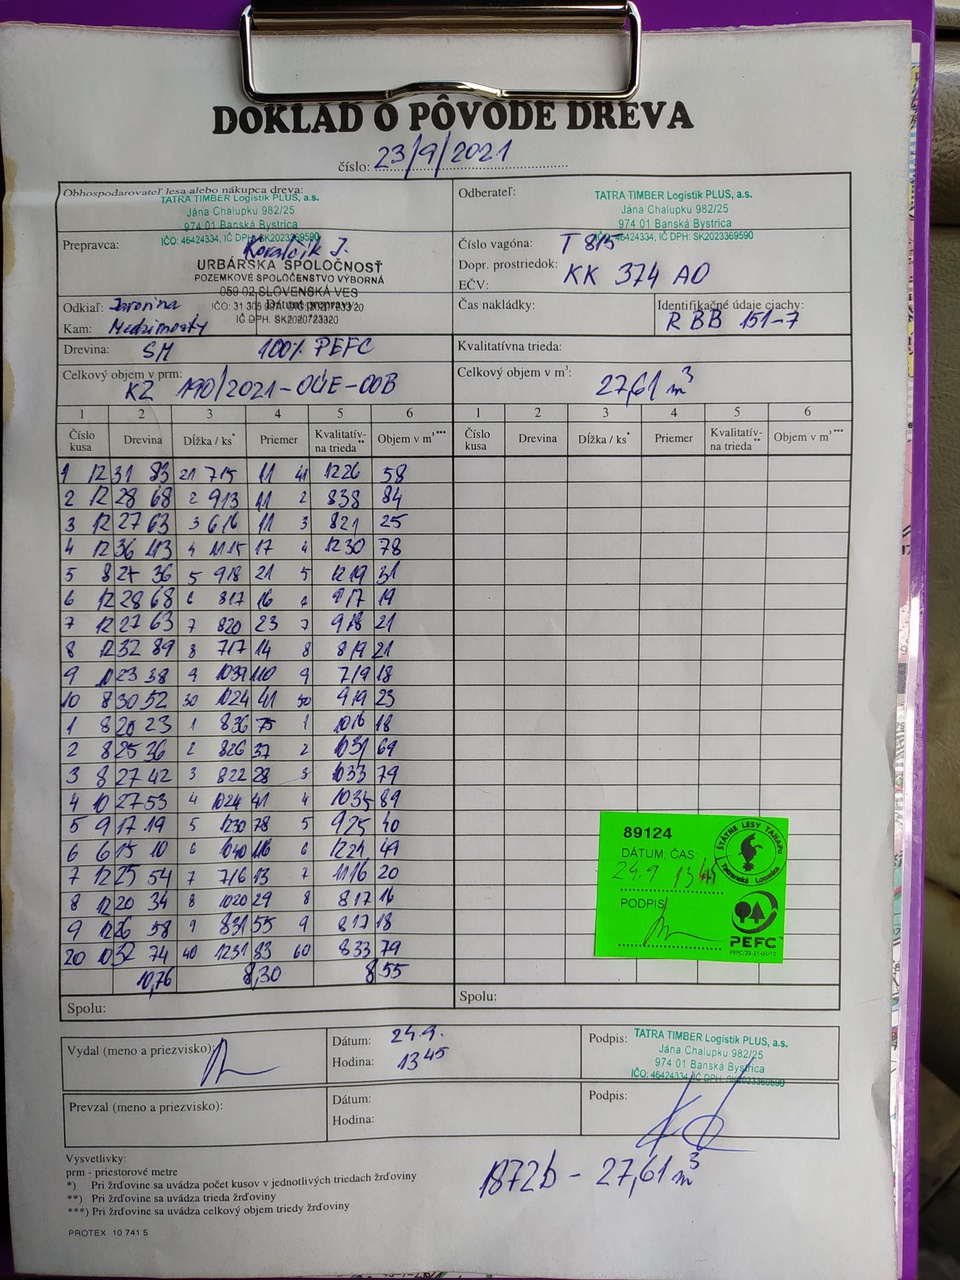 DOKLAD O PÔVODE DREVA
číslo: 23/9/2021
Obhospodarovateľ lesa alebo nákupca dreva:
TATRA TIMBER Logistik PLUS, a.s.
Jána Chalupku 982/25
974 01 Banská Bystrica
IČO: 46424334, IČ DPH: SK2023369590
Odberateľ:
TATRA TIMBER Logistik PLUS, a.s.
Jána Chalupku 982/25
974 01 Banská Bystrica
IČO: 46424334, IČ DPH: SK2023369590
Prepravca: Kovalčik J.
URBÁRSKA SPOLOČNOSŤ
POZEMKOVÉ SPOLOČENSTVO VÝBORNÁ
059 02 SLOVENSKÁ VES
IČ DPH: SK2020723320
Číslo vagóna: T 815
Dopr. prostriedok:
EČV: KK 374 AO
Odkiaľ: Javorina
Dátum prepravy:
Kam: Medzimosty
Čas nakládky:
Identifikačné údaje ciachy:
RBB 151-7
Drevina: SM 100% PEFC
Kvalitatívna trieda:
Celkový objem v prm:
KZ 190/2021-OÚE-OOB
Celkový objem v m³: 27,61 m³
1 2 3 4 5 6 1 2 3 4 5 6
Číslo kusa Drevina Dĺžka / ks* Priemer Kvalitatívna trieda** Objem v m³***
Číslo kusa Drevina Dĺžka / ks* Priemer Kvalitatívna trieda** Objem v m³***
1 12 31 83 21 715 11 41 1226 58
2 12 28 68 2 913 11 2 838 84
3 12 27 63 3 616 11 3 821 25
4 12 36 113 4 1115 17 4 1230 78
5 8 25 36 5 918 21 5 1219 31
6 12 28 68 6 817 16 6 917 19
7 12 27 63 7 820 23 7 918 21
8 12 32 89 8 717 14 8 819 21
9 10 23 38 9 1039 110 9 719 18
10 8 30 52 30 1024 41 50 919 23
1 8 20 23 1 836 75 1 1016 18
2 8 25 36 2 826 37 2 1031 69
3 8 27 42 3 822 28 3 1033 79
4 10 27 53 4 1024 41 4 1035 89
5 9 17 19 5 1230 78 5 925 40
6 6 15 10 6 1040 116 6 1221 49
7 12 25 54 7 716 13 7 1116 20
8 12 20 34 8 1020 29 8 817 16
9 12 26 58 9 831 55 9 817 18
20 10 32 74 40 1231 83 60 833 79
10,76 8,30 8,55
Spolu:
Spolu:
89124
DÁTUM, ČAS:
24.9 13 45
PODPIS:
ŠTÁTNE LESY TANAPu
Tatranská Lomnica
PEFC
Vydal (meno a priezvisko):
Dátum: 24.9.
Hodina: 13 45
Podpis:
TATRA TIMBER Logistik PLUS, a.s.
Jána Chalupku 982/25
974 01 Banská Bystrica
IČO: 46424334, IČ DPH: SK2023369590
Prevzal (meno a priezvisko):
Dátum:
Hodina:
Podpis:
1872b - 27,61 m³
Vysvetlivky:
prm - priestorové metre
*) Pri žrďovine sa uvádza počet kusov v jednotlivých triedach žrďoviny
**) Pri žrďovine sa uvádza trieda žrďoviny
***) Pri žrďovine sa uvádza celkový objem triedy žrďoviny
PROTEX 10 741 5